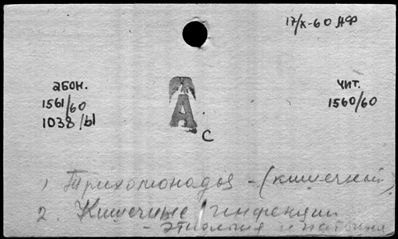 17/X-60 АФ
абон.
1561/60
1038/61
чит.
1560/60
А
с
1) Трихомонадоз - (кишечный)
2. Кишечные инфекции
- этиология и патогенез